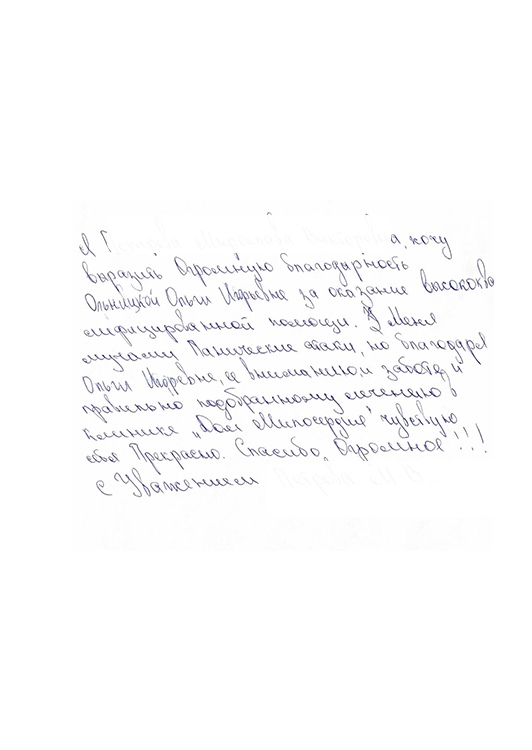 Я а, хочу
выразить Огромную благодарность
Ольницкой Ольги Игоревне за оказание высококва
лифицированной помощи. У Меня
мучаему Панические атаки, но благодаря
Ольги Игоревне, ее вниманию и заботе, и
правильно подобранному лечению в
клинике „Дом Милосердие" чувствую
себя Прекрасно. Спасибо „Огромное"!!!
с Уважением